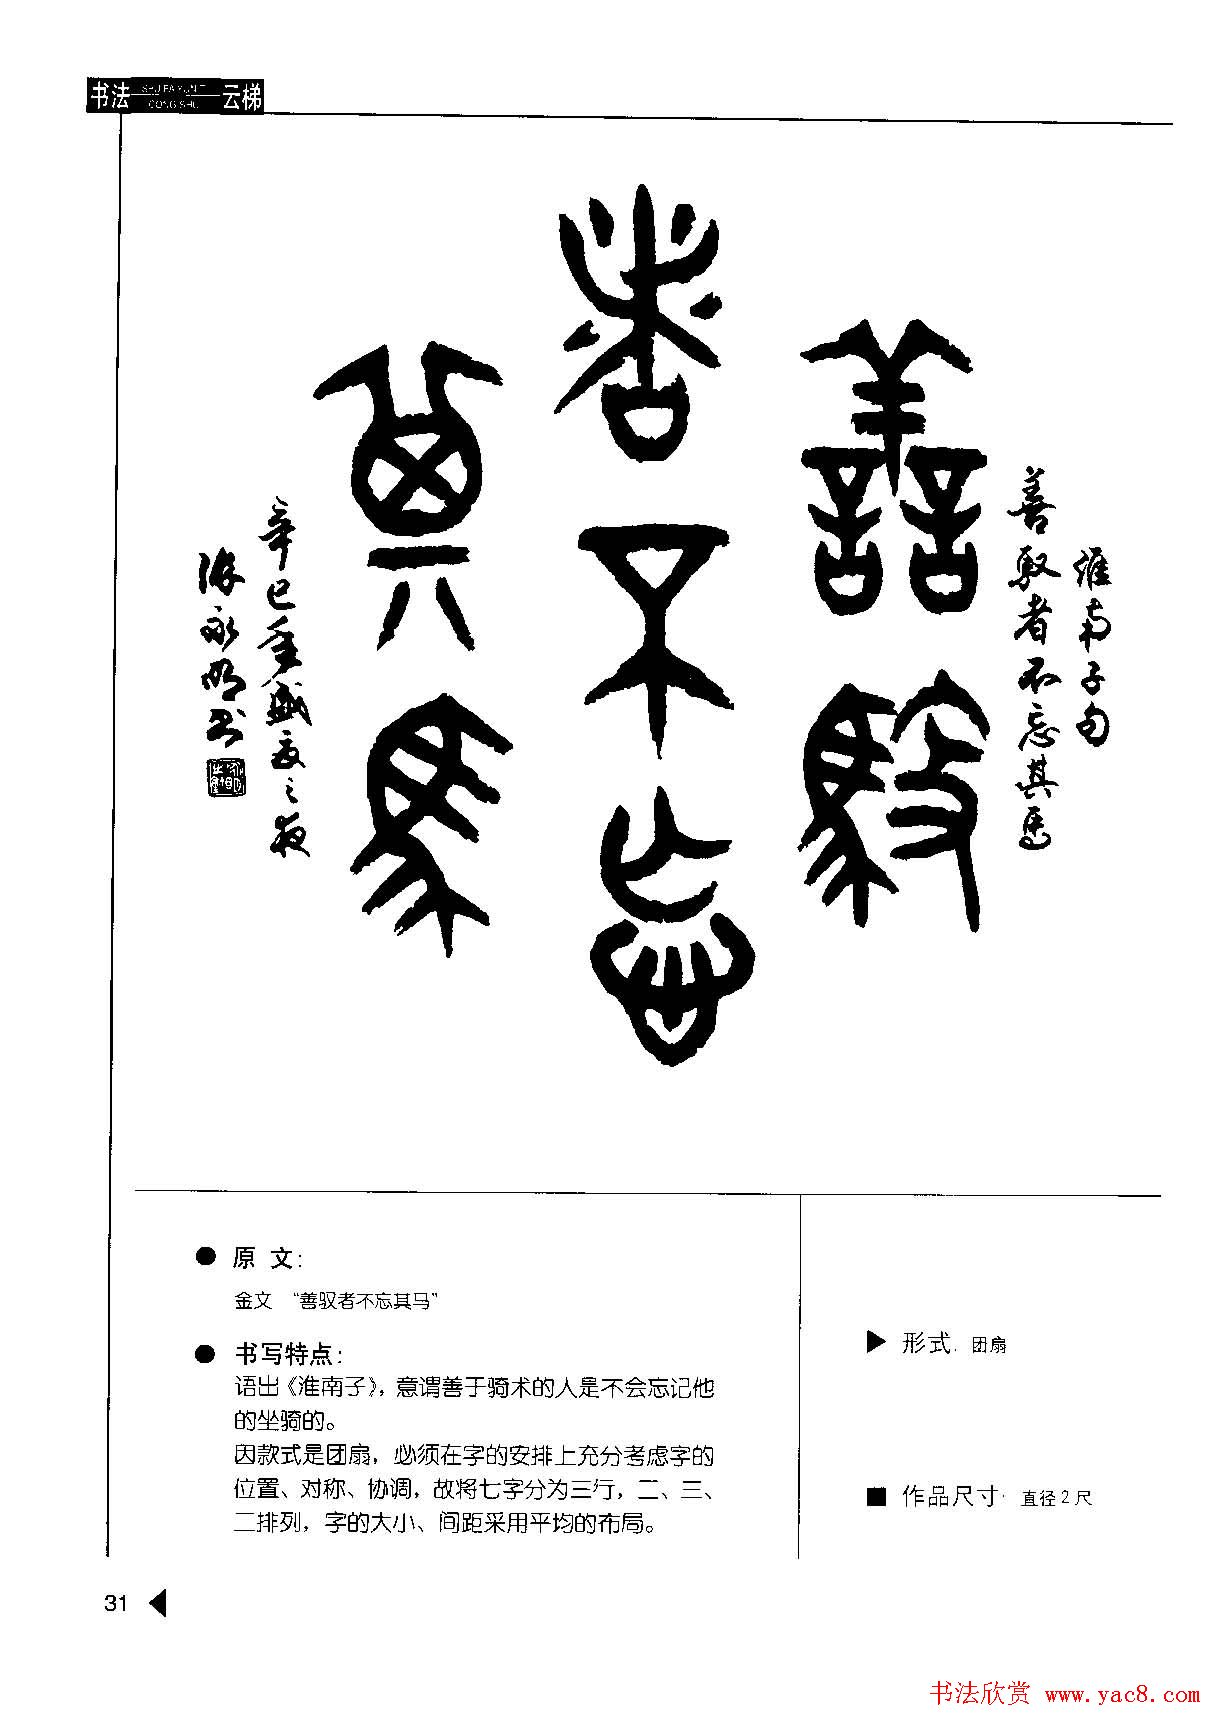 书法 SHU FA YUN TI CONG SHU 云梯
善驭
者不忘
其马
淮南子句
善驭者不忘其马
辛巳
之夜
永明书
● 原 文:
金文 “善驭者不忘其马”
● 书写特点:
语出《淮南子》,意谓善于骑术的人是不会忘记他
的坐骑的。
因款式是团扇,必须在字的安排上充分考虑字的
位置、对称、协调,故将七字分为三行,二、三、
二排列,字的大小、间距采用平均的布局。
▶ 形式. 团扇
■ 作品尺寸· 直径2尺
31 ◀
书法欣赏 www.yac8.com